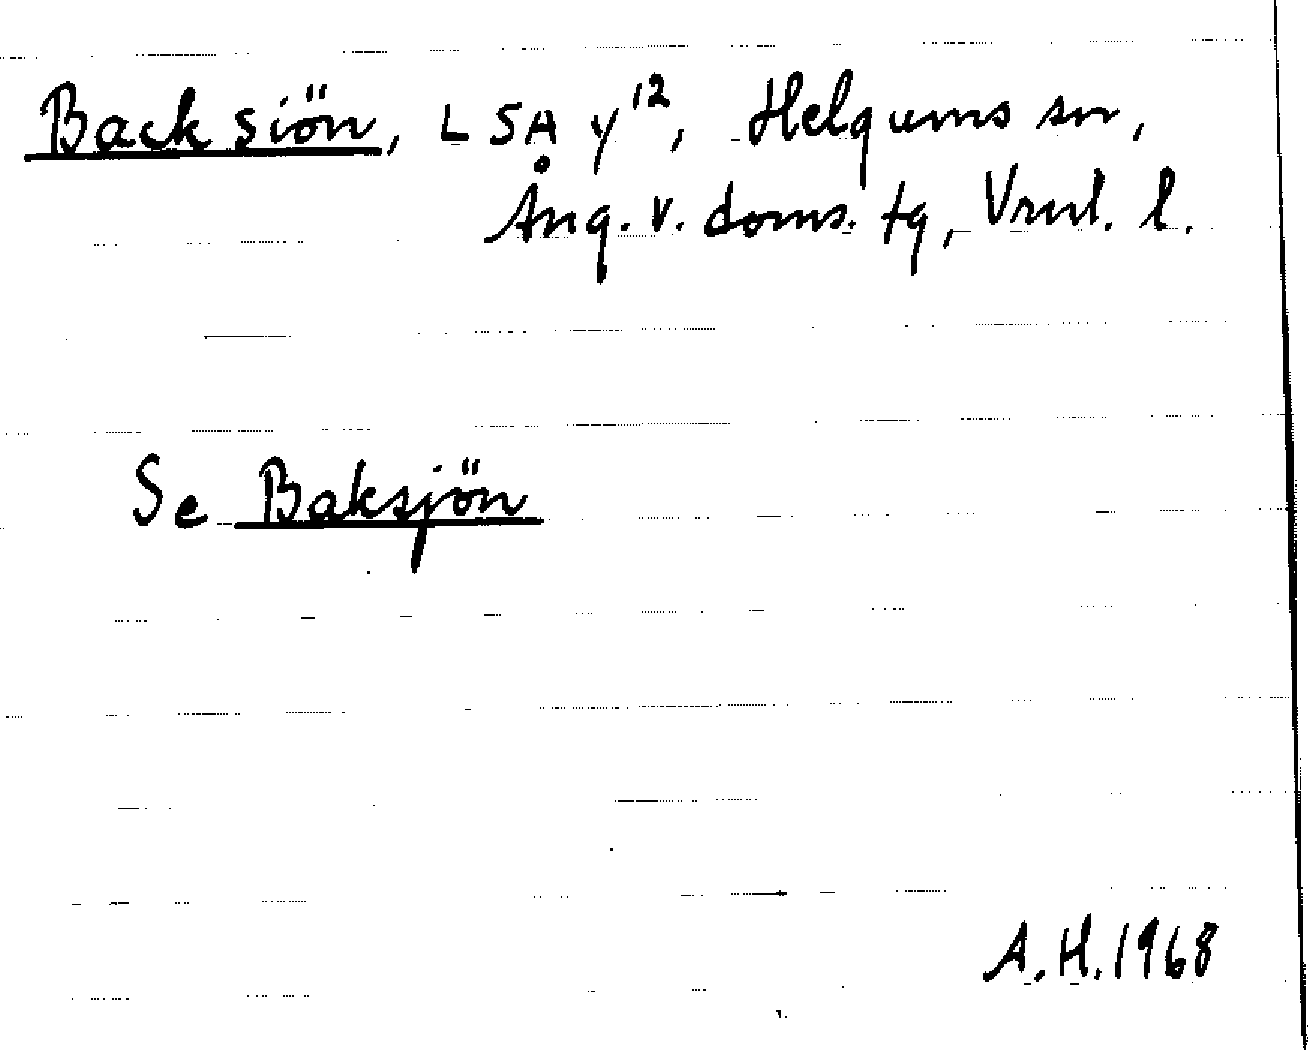 Back siön, LSA y¹², Helgums sn,
Ång. v. doms. tg, Vnrl. l.
Se Baksjön
A.H. 1968